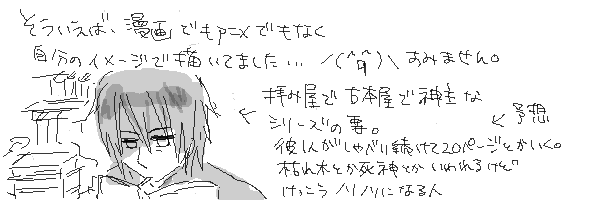 そういえば、漫画でもアニメでもなく
自分のイメージで描いてました… /(^q^)\ すみません。
← 拝み屋で古本屋で神主な
シリーズの事。
← 予想
彼1人がしゃべり続けて20ページとかいく。
枯れ木とか死神とかいわれるけど
けっこうノリノリになる人